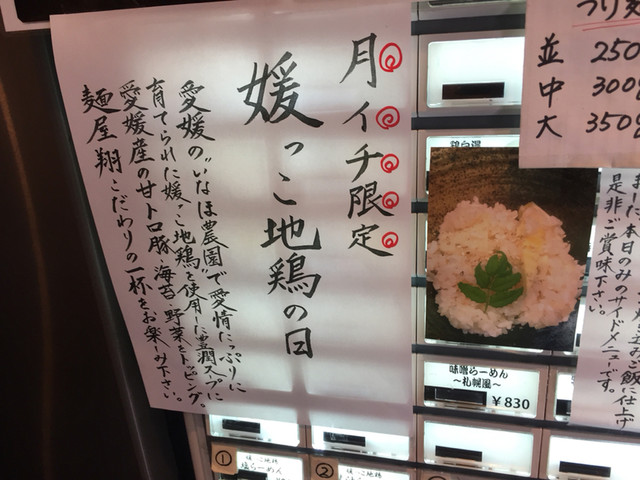 月イチ限定
媛っこ地鶏の日
愛媛の"いなほ農園"で愛情たっぷりに
育てられた媛っこ地鶏を使用した豊潤スープに
愛媛産の甘トロ豚、海苔、野菜をトッピング。
麺屋 翔こだわりの一杯をお楽しみ下さい。
つけ麺
並 250
中 300g
大 350g
鶏白湯
本日のみのサイドメニューです。
是非ご賞味下さい。
味噌らーめん
～札幌風～
￥830
①
媛っこ地鶏
塩らーめん
②
媛っこ地鶏